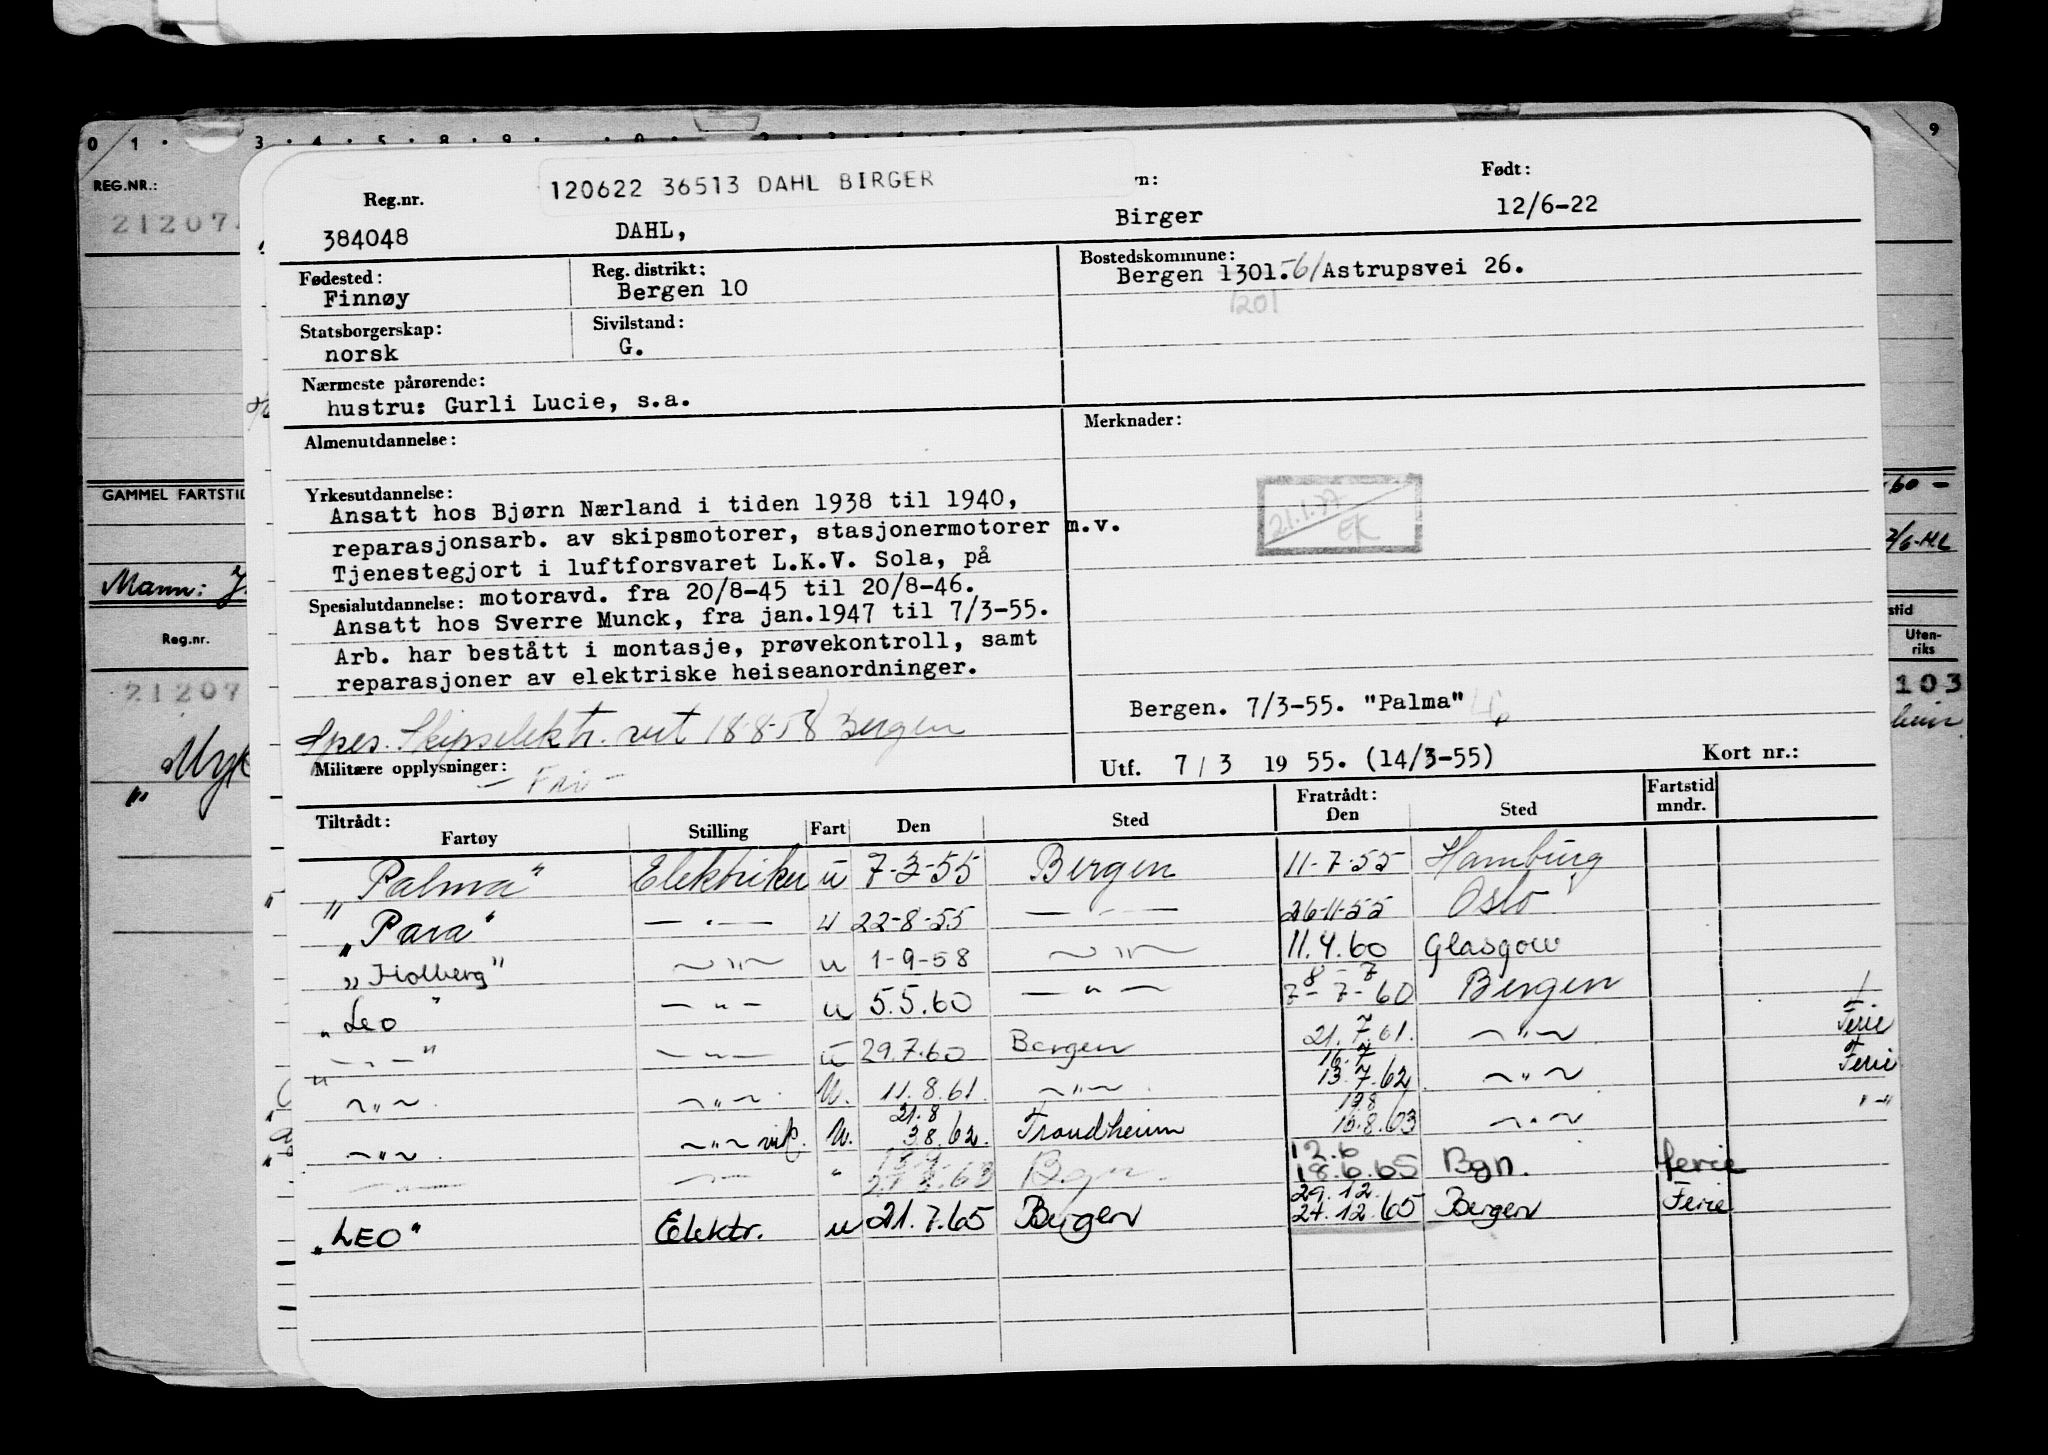 0 1 · 3 · 4 · 5 · 8 · 9 · 0 ·
9
REG.NR.:
21207
GAMMEL FARTSTID
Mann:
Reg.nr.
21207
60 -
stid
Uten-
riks
103
120622 36513 DAHL BIRGER
Reg.nr.
n:
Født:
384048 DAHL, Birger 12/6-22
Fødested:
Finnøy
Reg. distrikt:
Bergen 10
Bostedskommune:
Bergen 1301.-61 Astrupsvei 26.
1201
Statsborgerskap:
norsk
Sivilstand:
G.
Nærmeste pårørende:
hustru: Gurli Lucie, s.a.
Almenutdannelse:
Merknader:
Yrkesutdannelse:
Ansatt hos Bjørn Nærland i tiden 1938 til 1940,
reparasjonsarb. av skipsmotorer, stasjonermotorer m.v.
Tjenestegjort i luftforsvaret L.K.V. Sola, på
Spesialutdannelse: motoravd. fra 20/8-45 til 20/8-46.
Ansatt hos Sverre Munck, fra jan.1947 til 7/3-55.
Arb. har bestått i montasje, prøvekontroll, samt
reparasjoner av elektriske heiseanordninger.
21.1.77
EK
Bergen. 7/3-55. "Palma"
Spes. Skipselektr. sert 18-8-58 Bergen
Militære opplysninger:
- Fri -
Utf. 7 / 3 19 55. (14/3-55)
Kort nr.:
Tiltrådt:
Fartøy Stilling Fart Den Sted
Fratrådt:
Den Sted
Fartstid
mndr.
"Palma" Elektriker u 7-3-55 Bergen 11-7-55 Hamburg
"Para" — · — u 22-8-55 — " — 26-11-55 Oslo
"Holberg" — " — u 1-9-58 — " — 11.4.60 Glasgow
"Leo" — " — u 5.5.60 — " — 8 - 7
7 - 7 - 60 Bergen
— " — — " — u 29.7.60 Bergen 21.7.61. — " — Ferie
— " — — " — U. 11.8.61. — " — 16.7
13.7.62 — " — Ferie
— " — — " — vik. U. 21.8
3.8.62. Trondheim 19.8
16.8.63 — " — " —
— " — — " — " Bgn. 12.6
18.6.65 Bgn. ferie
"LEO" Elektr. u 21.7.65 Bergen 29.12.
27.12.65 Bergen Ferie